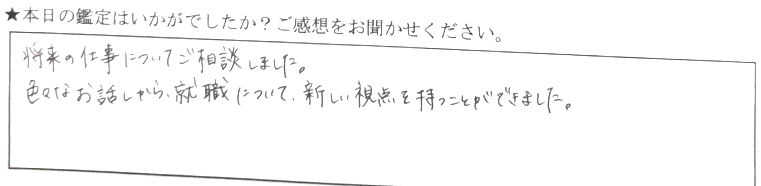 ★本日の鑑定はいかがでしたか？ご感想をお聞かせください。
将来の仕事についてご相談しました。
色々なお話しから、就職について、新しい視点を持つことができました。